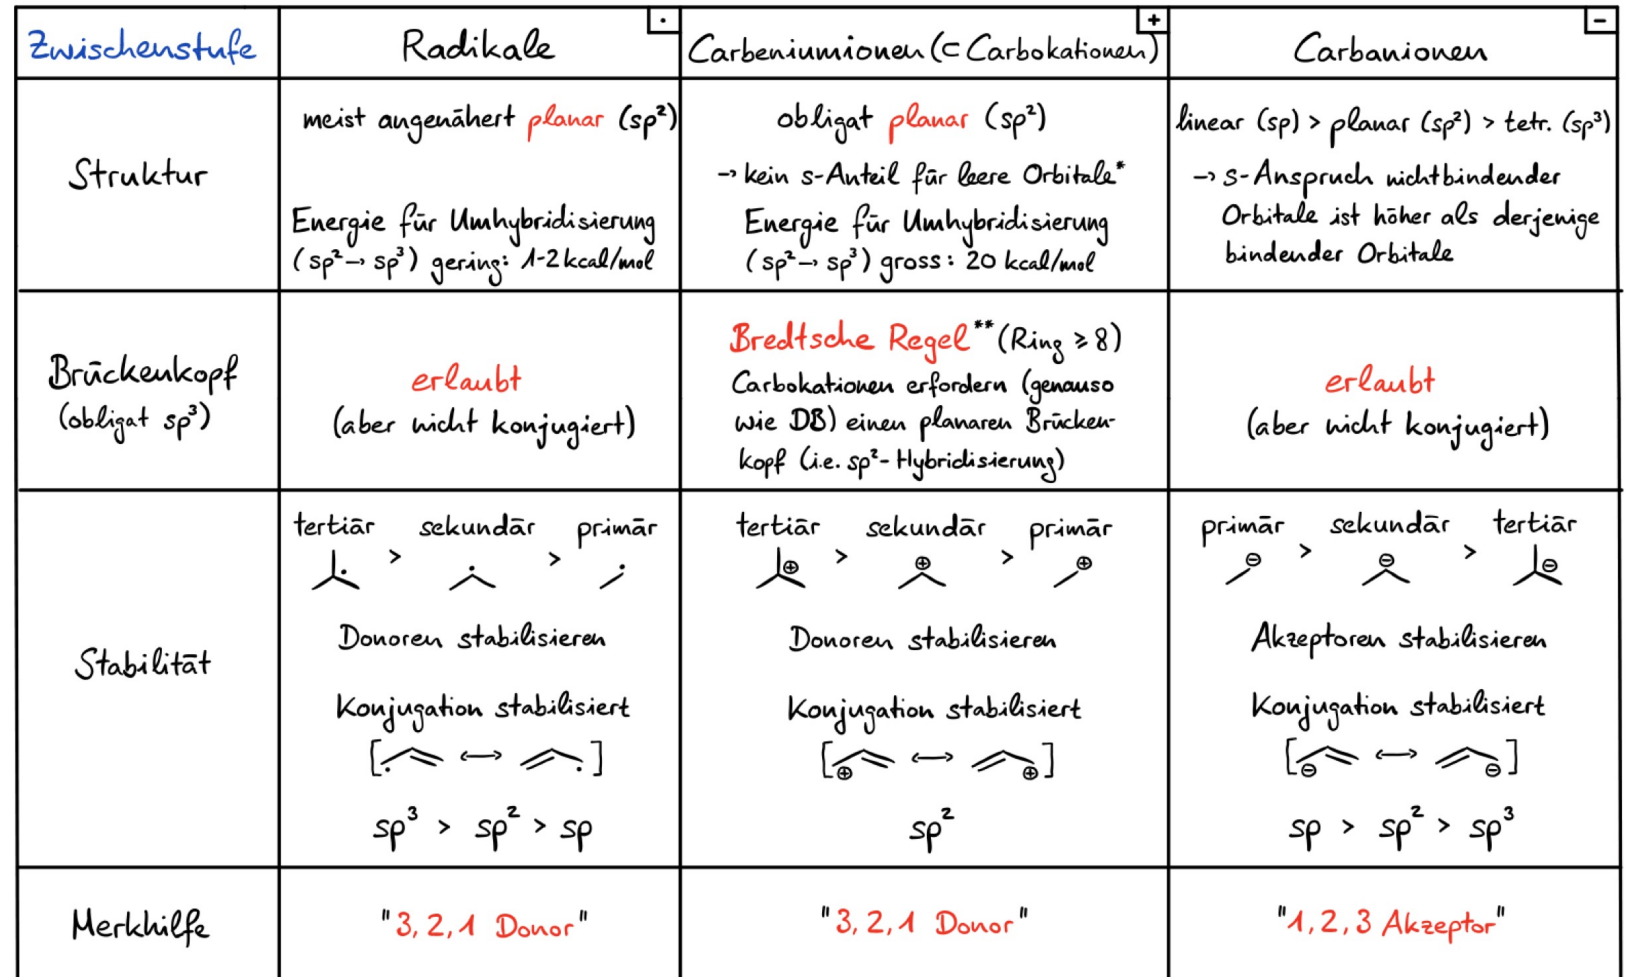 Zwischenstufe
Radikale
·
Carbeniumionen (⊂ Carbokationen)
+
Carbanionen
−
Struktur
meist angenähert planar (sp²)
Energie für Umhybridisierung
(sp² → sp³) gering: 1-2 kcal/mol
obligat planar (sp²)
→ kein s-Anteil für leere Orbitale*
Energie für Umhybridisierung
(sp² → sp³) gross: 20 kcal/mol
linear (sp) > planar (sp²) > tetr. (sp³)
→ s-Anspruch nichtbindender
Orbitale ist höher als derjenige
bindender Orbitale
Brückenkopf
(obligat sp³)
erlaubt
(aber nicht konjugiert)
Bredtsche Regel** (Ring ⩾ 8)
Carbokationen erfordern (genauso
wie DB) einen planaren Brücken-
kopf (i.e. sp²-Hybridisierung)
erlaubt
(aber nicht konjugiert)
Stabilität
tertiär > sekundär > primär
Donoren stabilisieren
Konjugation stabilisiert
[· ↔ ·]
sp³ > sp² > sp
tertiär > sekundär > primär
⊕ ⊕ ⊕
Donoren stabilisieren
Konjugation stabilisiert
[⊕ ↔ ⊕]
sp²
primär > sekundär > tertiär
⊖ ⊖ ⊖
Akzeptoren stabilisieren
Konjugation stabilisiert
[⊖ ↔ ⊖]
sp > sp² > sp³
Merkhilfe
"3, 2, 1 Donor"
"3, 2, 1 Donor"
"1, 2, 3 Akzeptor"